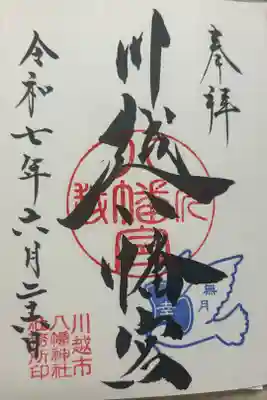 奉拝
川越八幡宮
川越八幡宮
無月
幸
川越市
八幡神社
社務所印
令和七年六月二日